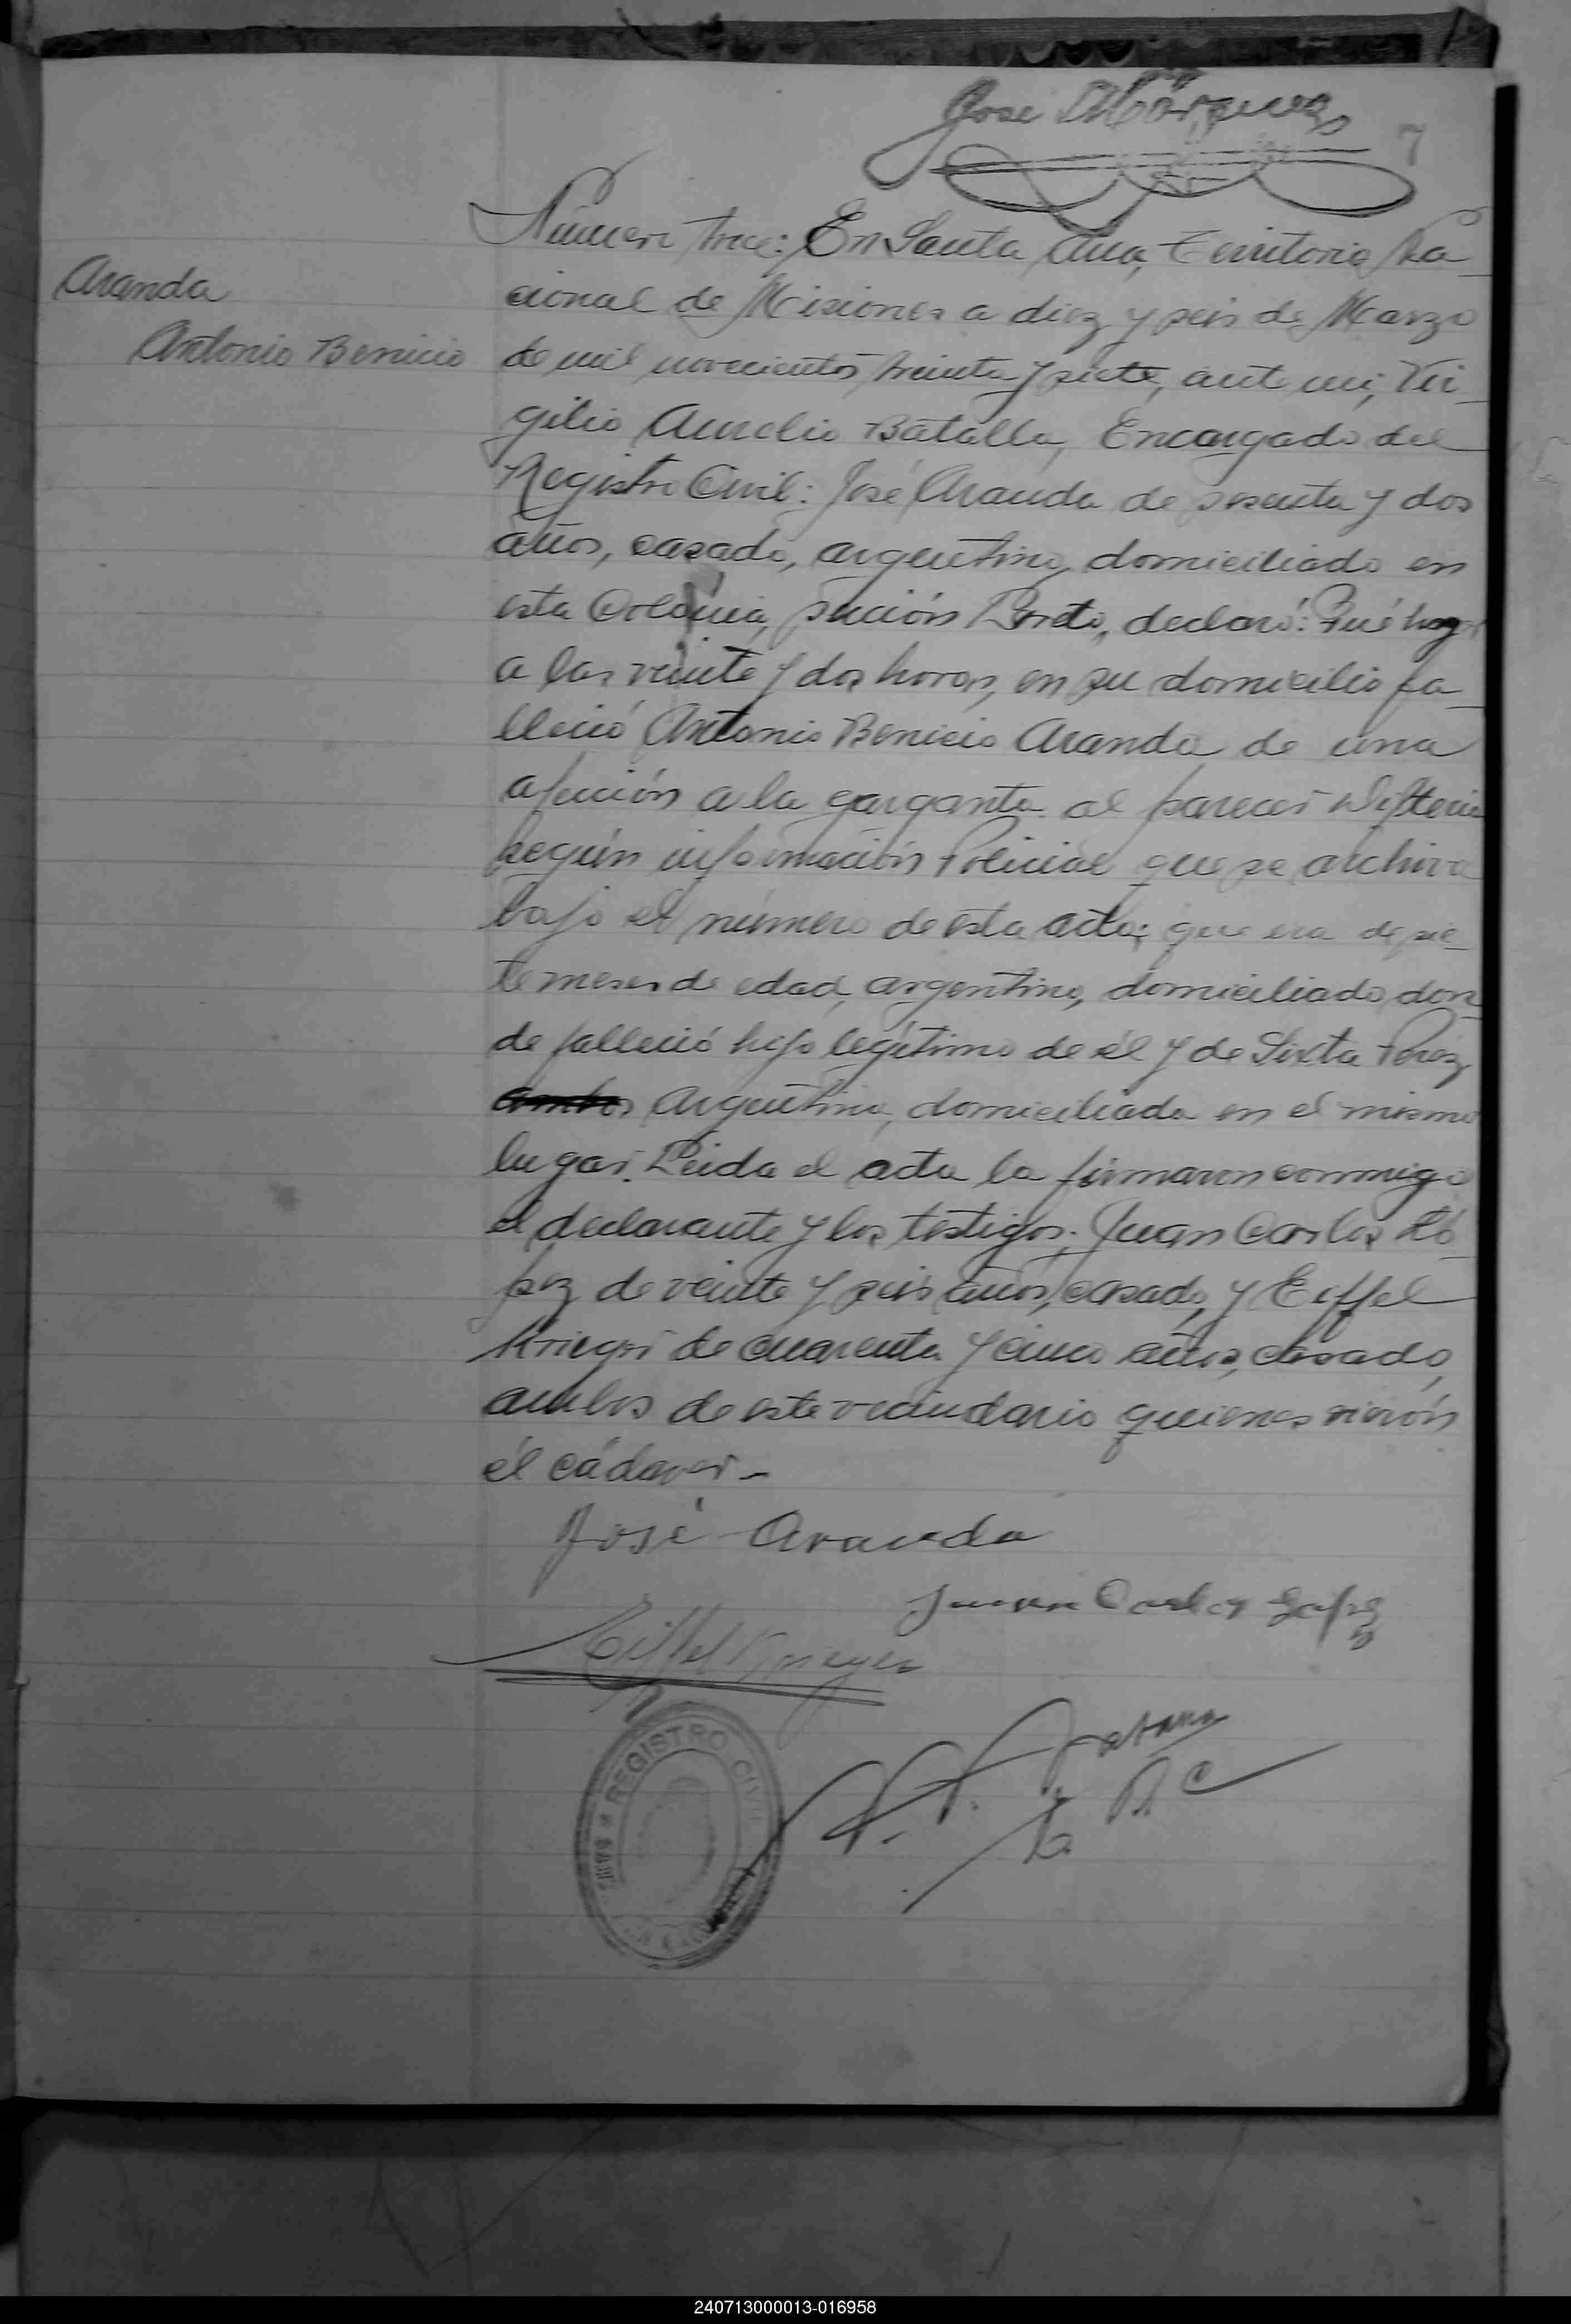 Jose Márquez
7
Aranda
Antonio Benicio
Número trece: En Santa Ana, Territorio Na-
cional de Misiones a diez y seis de Marzo
de mil novecientos treinta y siete, ante mi, Vir-
gilio Aurelio Batalla, Encargado del
Registro Civil: José Aranda de sesenta y dos
años, casado, argentino, domiciliado en
esta Colonia, sección Loreto, declaró: Qué hoy
a las veinte y dos horas, en su domicilio fa-
lleció Antonio Benicio Aranda de una
afección a la garganta al parecer Difteria
según información Policial que se archiva
bajo el número de esta acta; que era de sie-
te meses de edad, argentino, domiciliado don-
de falleció hijo legítimo de él y de Sixta Perez,
ambos Argentina, domiciliada en el mismo
lugar. Leida el acta la firmaron conmigo
el declarante y los testigos: Juan Carlos Ló-
pez de veinte y seis años, casado, y Eiffel
de cuarenta y cinco años, casado,
ambos de este vecindario quienes vierón
él cádaver.-
José Aranda
Juan Carlos Lopez
Eiffel
REGISTRO CIVIL
240713000013-016958